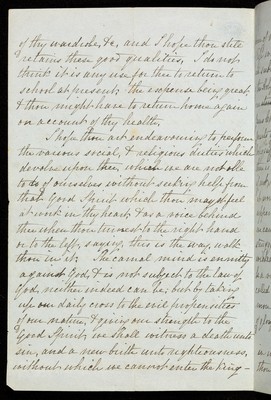 of thy wardrobe, &c, and I hope thou still
retains these good qualities, I do not
think it is any use for thee to return to
school at present; the expense being great
& thou, might have to return home again
on account of thy health,
I hope thou art endeavouring to perform
the various social, & religious duties which
devolve upon thee, which we are not able
to do of ourselves without seeking help from
that Good Spirit which thou mayst feel
at work in thy heart, & as a voice behind
thee when thou turnest to the right hand
or to the left, saying, this is the way, walk
thou in it; The carnal mind is enmity
against God, & is not subject to the law of
God, neither indeed can be; but by taking
up our daily cross to the evil propensities
of our nature, & giving our strength to the
Good Spirit; we shall witness a death unto
sin, and a new birth unto righteousness,
without which we cannot enter the King-